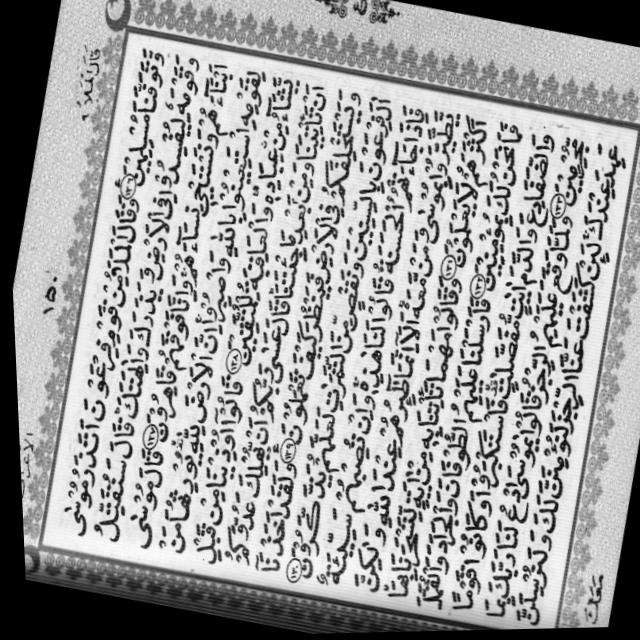 قَالَ الْمَلَأُ ٩
١٥٠
وَتَوَفَّنَا مُسْلِمِينَ ﴿١٢٦﴾ وَقَالَ الْمَلَأُ مِنْ قَوْمِ فِرْعَوْنَ اَتَذَرُ مُوسٰى
وَقَوْمَهُ لِيُفْسِدُوا فِى الْاَرْضِ وَيَذَرَكَ وَاٰلِهَتَكَ قَالَ سَنُقَتِّلُ
اَبْنَآءَهُمْ وَنَسْتَحْيٖ نِسَآءَهُمْ وَاِنَّا فَوْقَهُمْ قَاهِرُونَ ﴿١٢٧﴾ قَالَ مُوسٰى
لِقَوْمِهِ اسْتَعِينُوا بِاللّٰهِ وَاصْبِرُوا اِنَّ الْاَرْضَ لِلّٰهِ يُورِثُهَا مَنْ
يَشَآءُ مِنْ عِبَادِهٖ وَالْعَاقِبَةُ لِلْمُتَّقِينَ ﴿١٢٨﴾ قَالُوا اُوذِينَا مِنْ قَبْلِ
اَنْ تَأْتِيَنَا وَمِنْ بَعْدِ مَا جِئْتَنَا قَالَ عَسٰى رَبُّكُمْ اَنْ يُهْلِكَ عَدُوَّكُمْ
وَيَسْتَخْلِفَكُمْ فِى الْاَرْضِ فَيَنْظُرَ كَيْفَ تَعْمَلُونَ ﴿١٢٩﴾ وَلَقَدْ اَخَذْنَا
اٰلَ فِرْعَوْنَ بِالسِّنِينَ وَنَقْصٍ مِنَ الثَّمَرَاتِ لَعَلَّهُمْ يَذَّكَّرُونَ ﴿١٣٠﴾
فَاِذَا جَآءَتْهُمُ الْحَسَنَةُ قَالُوا لَنَا هٰذِهٖ وَاِنْ تُصِبْهُمْ سَيِّئَةٌ
يَطَّيَّرُوا بِمُوسٰى وَمَنْ مَعَهُ اَلَآ اِنَّمَا طَآئِرُهُمْ عِنْدَ اللّٰهِ وَلٰكِنَّ
اَكْثَرَهُمْ لَا يَعْلَمُونَ ﴿١٣١﴾ وَقَالُوا مَهْمَا تَأْتِنَا بِهٖ مِنْ اٰيَةٍ لِتَسْحَرَنَا بِهَا
فَمَا نَحْنُ لَكَ بِمُؤْمِنِينَ ﴿١٣٢﴾ فَاَرْسَلْنَا عَلَيْهِمُ الطُّوفَانَ وَالْجَرَادَ وَالْقُمَّلَ
وَالضَّفَادِعَ وَالدَّمَ اٰيَاتٍ مُفَصَّلَاتٍ فَاسْتَكْبَرُوا وَكَانُوا قَوْمًا
مُجْرِمِينَ ﴿١٣٣﴾ وَلَمَّا وَقَعَ عَلَيْهِمُ الرِّجْزُ قَالُوا يَا مُوسَى ادْعُ لَنَا رَبَّكَ بِمَا
عَهِدَ عِنْدَكَ لَئِنْ كَشَفْتَ عَنَّا الرِّجْزَ لَنُؤْمِنَنَّ لَكَ وَلَنُرْسِلَنَّ
مَعَكَ